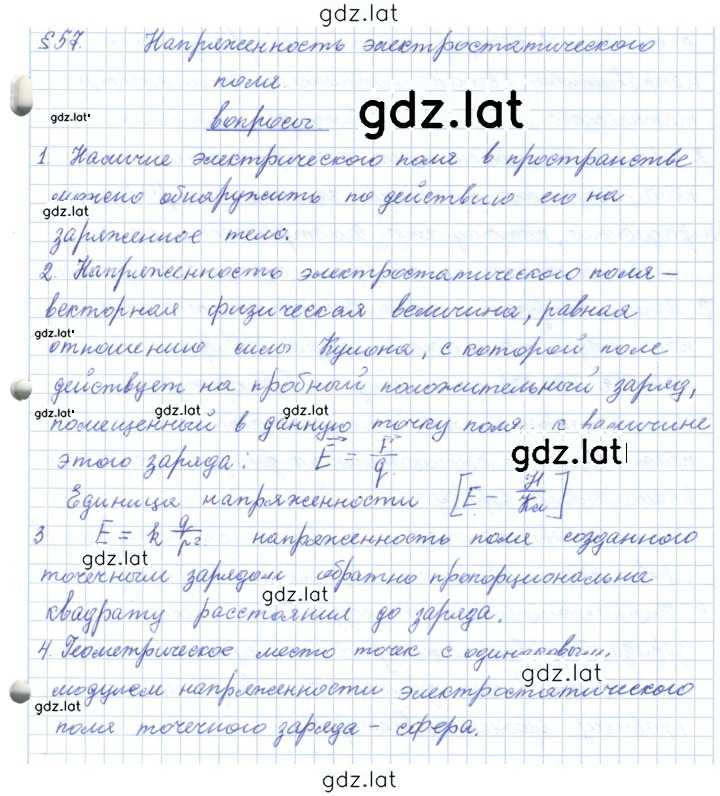 gdz.lat
§57. Напряженность электростатического
поля.
gdz.lat
вопросы
gdz.lat
1. Наличие электрического поля в пространстве
можно обнаружить по действию его на
gdz.lat
заряженное тело.
2. Напряженность электростатического поля –
векторная физическая величина, равная
gdz.lat
отношению силы Кулона, с которой поле
действует на пробный положительный заряд,
gdz.lat gdz.lat gdz.lat
помещенный в данную точку поля, к величине
этого заряда: E = F/q
gdz.lat
Единица напряженности [E – Н/Кл]
3 E = k q/r². напряженность поля созданного
gdz.lat
точечным зарядом обратно пропорциональна
gdz.lat
квадрату расстояния до заряда.
4. Геометрическое место точек с одинаковым
gdz.lat
модулем напряженности электростатического
gdz.lat
поля точечного заряда – сфера.
gdz.lat
gdz.lat